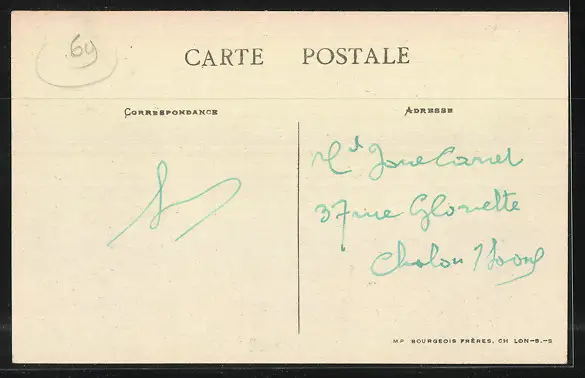 69
CARTE POSTALE
CORRESPONDANCE
ADRESSE
37 rue Gloriette
Chalon s/Saone
MP BOURGEOIS FRÈRES, CH LON-S.-S